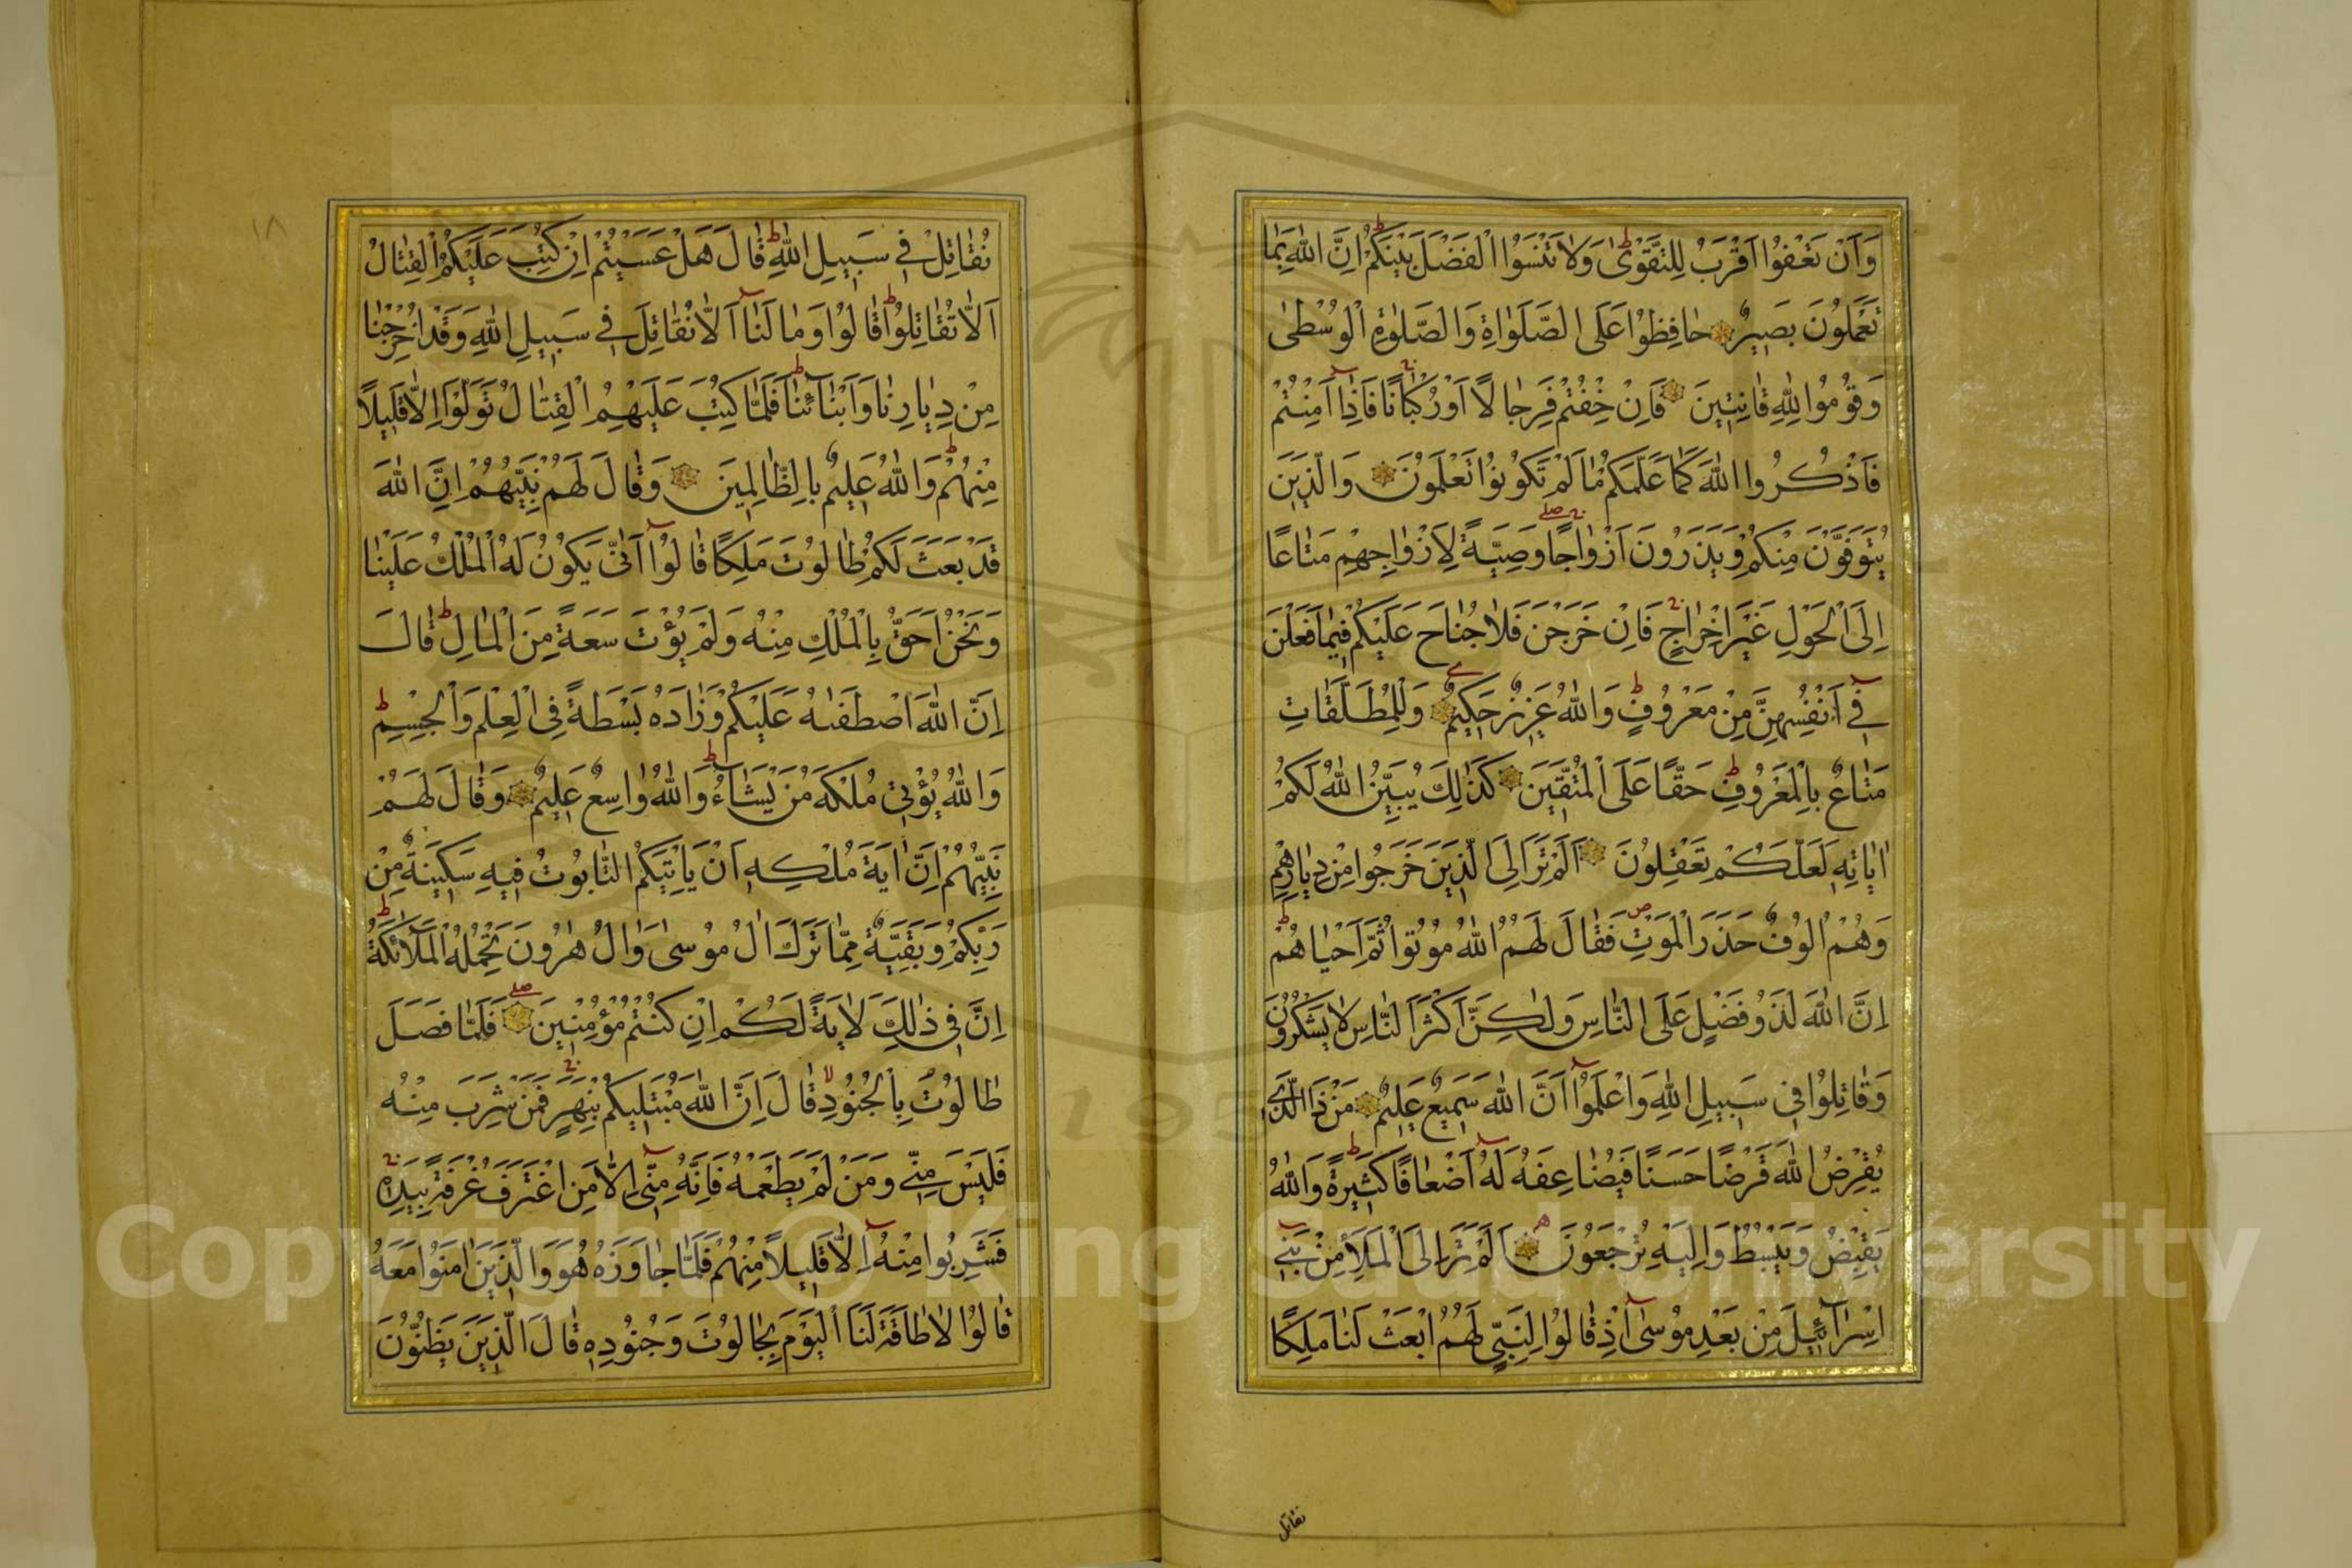 وَاَنْ تَعْفُوٓا اَقْرَبُ لِلتَّقْوٰىؕ وَلَا تَنْسَوُا الْفَضْلَ بَيْنَكُمْؕ اِنَّ اللّٰهَ بِمَا
تَعْمَلُونَ بَصِيرٌ حَافِظُوا عَلَى الصَّلَوَاةِ وَالصَّلٰوةِ الْوُسْطٰى
وَقُومُوا لِلّٰهِ قَانِتِينَ فَاِنْ خِفْتُمْ فَرِجَالًا اَوْ رُكْبَانًا فَاِذَٓا اَمِنْتُمْ
فَاذْكُرُوا اللّٰهَ كَمَا عَلَّمَكُمْ مَا لَمْ تَكُونُوا تَعْلَمُونَ وَالَّذِينَ
يُتَوَفَّوْنَ مِنْكُمْ وَيَذَرُونَ اَزْوَاجًا وَصِيَّةً لِاَزْوَاجِهِمْ مَتَاعًا
اِلَى الْحَوْلِ غَيْرَ اِخْرَاجٍ فَاِنْ خَرَجْنَ فَلَا جُنَاحَ عَلَيْكُمْ فِيمَا فَعَلْنَ
فِٓي اَنْفُسِهِنَّ مِنْ مَعْرُوفٍؕ وَاللّٰهُ عَزِيزٌ حَكِيمٌ وَلِلْمُطَلَّقَاتِ
مَتَاعٌ بِالْمَعْرُوفِؕ حَقًّا عَلَى الْمُتَّقِينَ كَذٰلِكَ يُبَيِّنُ اللّٰهُ لَكُمْ
اٰيَاتِهِ لَعَلَّكُمْ تَعْقِلُونَ اَلَمْ تَرَ اِلَى الَّذِينَ خَرَجُوا مِنْ دِيَارِهِمْ
وَهُمْ اُلُوفٌ حَذَرَ الْمَوْتِ فَقَالَ لَهُمُ اللّٰهُ مُوتُوا ثُمَّ اَحْيَاهُمْؕ
اِنَّ اللّٰهَ لَذُو فَضْلٍ عَلَى النَّاسِ وَلٰكِنَّ اَكْثَرَ النَّاسِ لَا يَشْكُرُونَ
وَقَاتِلُوا فِي سَبِيلِ اللّٰهِ وَاعْلَمُٓوا اَنَّ اللّٰهَ سَمِيعٌ عَلِيمٌ مَنْ ذَا الَّذِي
يُقْرِضُ اللّٰهَ قَرْضًا حَسَنًا فَيُضَاعِفَهُ لَهُٓ اَضْعَافًا كَثِيرَةًؕ وَاللّٰهُ
يَقْبِضُ وَيَبْسُطُ وَاِلَيْهِ تُرْجَعُونَ اَلَمْ تَرَ اِلَى الْمَلَأِ مِنْ بَنِي
اِسْرَآئِيلَ مِنْ بَعْدِ مُوسٰٓى اِذْ قَالُوا لِنَبِيٍّ لَهُمُ ابْعَثْ لَنَا مَلِكًا
نقاتل
١٨
نُقَاتِلْ فِي سَبِيلِ اللّٰهِؕ قَالَ هَلْ عَسَيْتُمْ اِنْ كُتِبَ عَلَيْكُمُ الْقِتَالُ
اَلَّا تُقَاتِلُواؕ قَالُوا وَمَا لَنَٓا اَلَّا نُقَاتِلَ فِي سَبِيلِ اللّٰهِ وَقَدْ اُخْرِجْنَا
مِنْ دِيَارِنَا وَاَبْنَآئِنَاؕ فَلَمَّا كُتِبَ عَلَيْهِمُ الْقِتَالُ تَوَلَّوْا اِلَّا قَلِيلًا
مِنْهُمْؕ وَاللّٰهُ عَلِيمٌ بِالظَّالِمِينَ وَقَالَ لَهُمْ نَبِيُّهُمْ اِنَّ اللّٰهَ
قَدْ بَعَثَ لَكُمْ طَالُوتَ مَلِكًا قَالُٓوا اَنّٰى يَكُونُ لَهُ الْمُلْكُ عَلَيْنَا
وَنَحْنُ اَحَقُّ بِالْمُلْكِ مِنْهُ وَلَمْ يُؤْتَ سَعَةً مِنَ الْمَالِؕ قَالَ
اِنَّ اللّٰهَ اصْطَفٰىهُ عَلَيْكُمْ وَزَادَهُ بَسْطَةً فِي الْعِلْمِ وَالْجِسْمِؕ
وَاللّٰهُ يُؤْتِي مُلْكَهُ مَنْ يَشَآءُؕ وَاللّٰهُ وَاسِعٌ عَلِيمٌ وَقَالَ لَهُمْ
نَبِيُّهُمْ اِنَّ اٰيَةَ مُلْكِهِ اَنْ يَأْتِيَكُمُ التَّابُوتُ فِيهِ سَكِينَةٌ مِنْ
رَبِّكُمْ وَبَقِيَّةٌ مِمَّا تَرَكَ اٰلُ مُوسٰى وَاٰلُ هٰرُونَ تَحْمِلُهُ الْمَلَآئِكَةُؕ
اِنَّ فِي ذٰلِكَ لَاٰيَةً لَكُمْ اِنْ كُنْتُمْ مُؤْمِنِينَ فَلَمَّا فَصَلَ
طَالُوتُ بِالْجُنُودِ قَالَ اِنَّ اللّٰهَ مُبْتَلِيكُمْ بِنَهَرٍ فَمَنْ شَرِبَ مِنْهُ
فَلَيْسَ مِنِّي وَمَنْ لَمْ يَطْعَمْهُ فَاِنَّهُ مِنِّٓي اِلَّا مَنِ اغْتَرَفَ غُرْفَةً بِيَدِهِ
فَشَرِبُوا مِنْهُ اِلَّا قَلِيلًا مِنْهُمْ فَلَمَّا جَاوَزَهُ هُوَ وَالَّذِينَ اٰمَنُوا مَعَهُ
قَالُوا لَا طَاقَةَ لَنَا الْيَوْمَ بِجَالُوتَ وَجُنُودِهِ قَالَ الَّذِينَ يَظُنُّونَ
Copyright © King Saud University